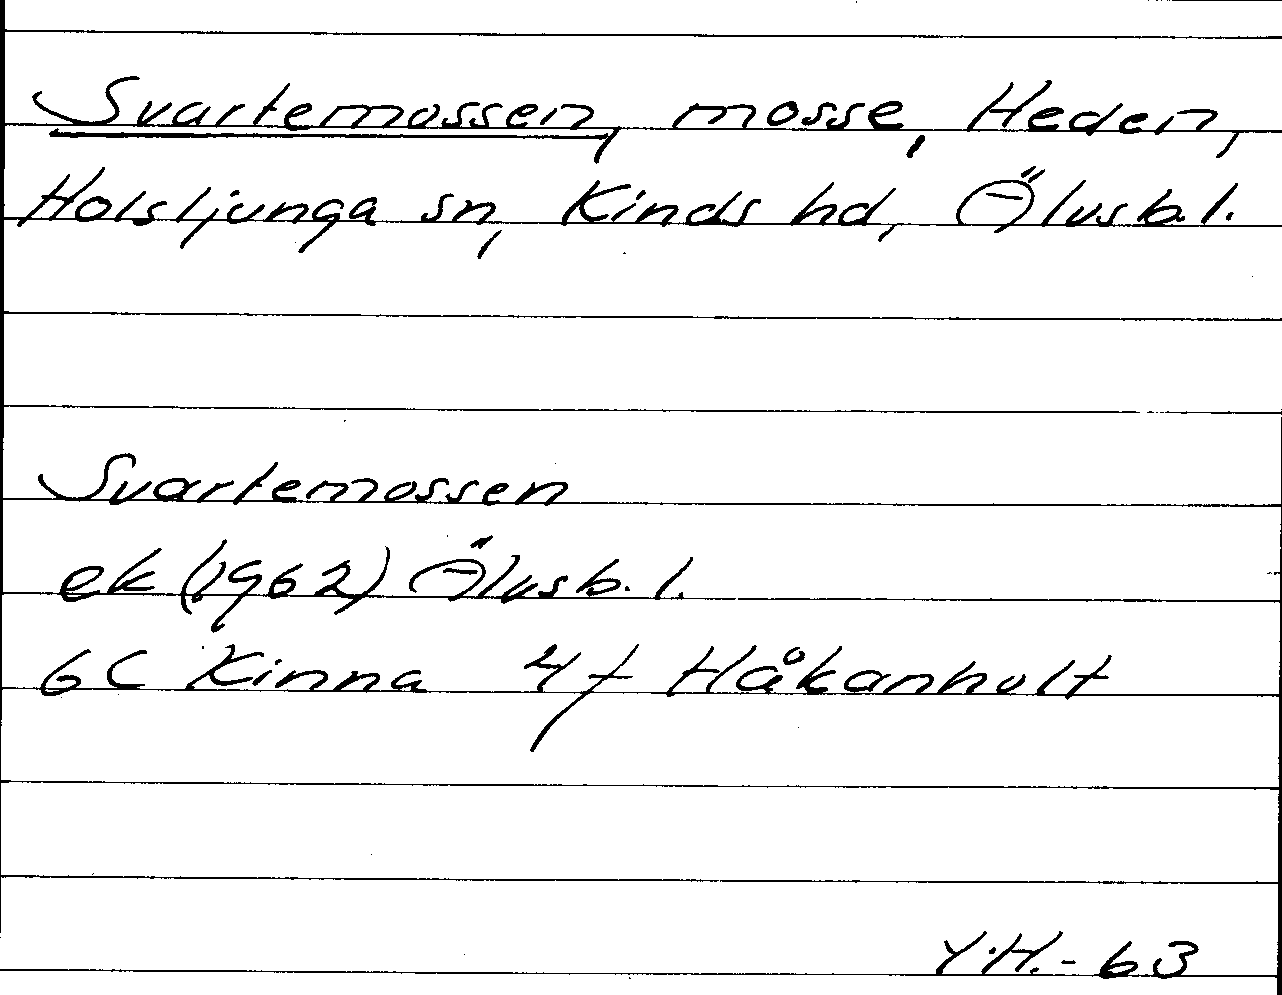 Svartemossen, mosse, Heden,
Holsljunga sn, Kinds hd, Älvsb.l.
Svartemossen
ek (1962) Älvsb.l.
6C Kinna 4f Håkanhult
Y.H.-63